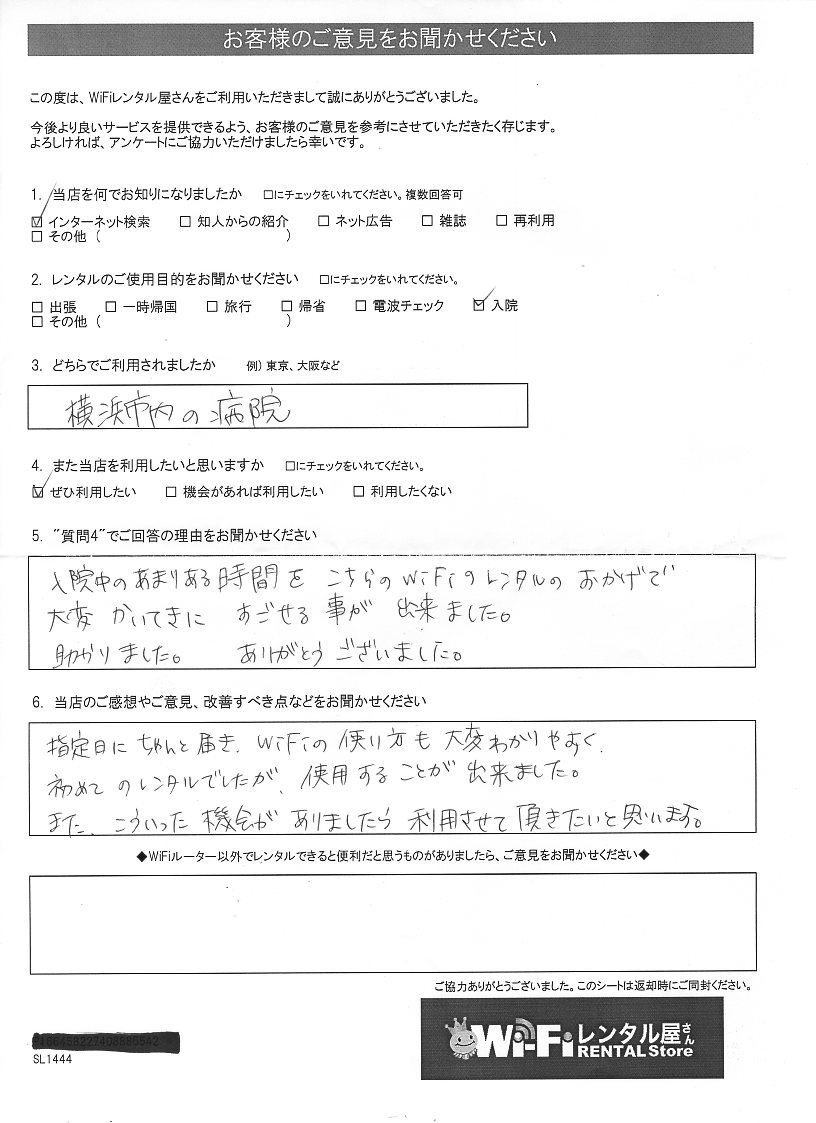 お客様のご意見をお聞かせください
この度は、WiFiレンタル屋さんをご利用いただきまして誠にありがとうございました。
今後より良いサービスを提供できるよう、お客様のご意見を参考にさせていただきたく存じます。
よろしければ、アンケートにご協力いただけましたら幸いです。
1. 当店を何でお知りになりましたか □にチェックをいれてください。複数回答可
☑ インターネット検索 □ 知人からの紹介 □ ネット広告 □ 雑誌 □ 再利用
□ その他 ( )
2. レンタルのご使用目的をお聞かせください □にチェックをいれてください。
□ 出張 □ 一時帰国 □ 旅行 □ 帰省 □ 電波チェック ☑ 入院
□ その他 ( )
3. どちらでご利用されましたか 例) 東京、大阪など
横浜市内の病院
4. また当店を利用したいと思いますか □にチェックをいれてください。
☑ ぜひ利用したい □ 機会があれば利用したい □ 利用したくない
5. "質問4"でご回答の理由をお聞かせください
入院中のあまりある時間を こちらのWiFiのレンタルの おかげで
大変 かいてきに すごせる 事が 出来ました。
助かりました。 ありがとうございました。
6. 当店のご感想やご意見、改善すべき点などをお聞かせください
指定日に ちゃんと届き、WiFiの使い方も 大変わかりやすく、
初めてのレンタルでしたが、使用することが出来ました。
また、こういった機会がありましたら利用させて頂きたいと思います。
◆WiFiルーター以外でレンタルできると便利だと思うものがありましたら、ご意見をお聞かせください◆
ご協力ありがとうございました。このシートは返却時にご同封ください。
Wi-Fiレンタル屋さん
RENTAL Store
SL1444